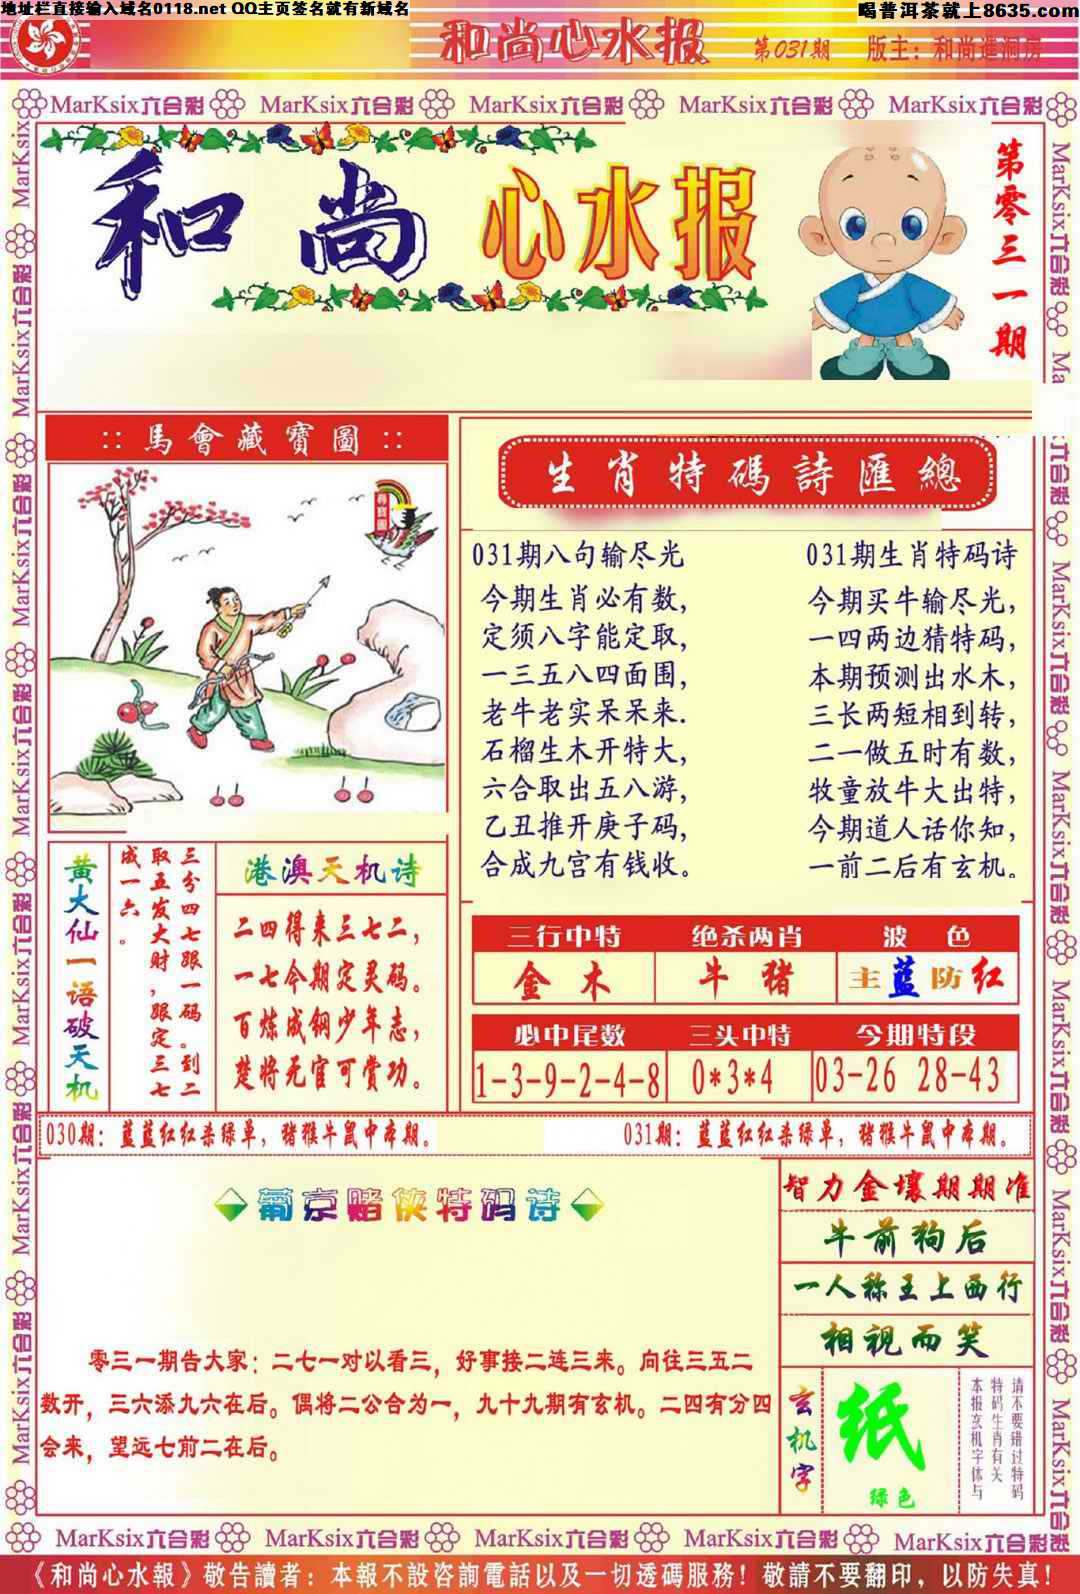 地址栏直接输入域名0118.net QQ主页签名就有新域名
喝普洱茶就上8635.com
和尚心水报 第031期 版主：和尚進洞房
MarKsix六合彩 MarKsix六合彩 MarKsix六合彩 MarKsix六合彩 MarKsix六合彩
和尚心水报
第零三一期
::馬會藏寶圖::
尋寶圖
生肖特碼詩匯總
031期八句输尽光
今期生肖必有数,
定须八字能定取,
一三五八四面围,
老牛老实呆呆来.
石榴生木开特大,
六合取出五八游,
乙丑推开庚子码,
合成九宫有钱收。
031期生肖特码诗
今期买牛输尽光,
一四两边猜特码,
本期预测出水木,
三长两短相到转,
二一做五时有数,
牧童放牛大出特,
今期道人话你知,
一前二后有玄机。
黄大仙一语破天机
三分四七跟一码。到二
取五发大财,跟定三七
成一六。
港澳天机诗
二四得来三七二,
一七今期定灵码。
百炼成钢少年志,
楚将无官可赏功。
三行中特 绝杀两肖 波色
金木 牛猪 主蓝防红
必中尾数 三头中特 今期特段
1-3-9-2-4-8 0*3*4 03-26 28-43
030期：蓝蓝红红杀绿单，猪猴牛鼠中本期。
031期：蓝蓝红红杀绿单，猪猴牛鼠中本期。
葡京赌侠特码诗
零三一期告大家：二七一对以看三，好事接二连三来。向往三五二
数开，三六添九六在后。偶将二公合为一，九十九期有玄机。二四有分四
会来，望远七前二在后。
智力金壤期期准
牛前狗后
一人称王上西行
相视而笑
玄机字
纸
绿色
请不要错过特码
特码生肖有关
本报玄机字体与
MarKsix六合彩 MarKsix六合彩 MarKsix六合彩 MarKsix六合彩 MarKsix六合彩
《和尚心水報》敬告讀者：本報不設咨詢電話以及一切透碼服務！敬請不要翻印，以防失真！